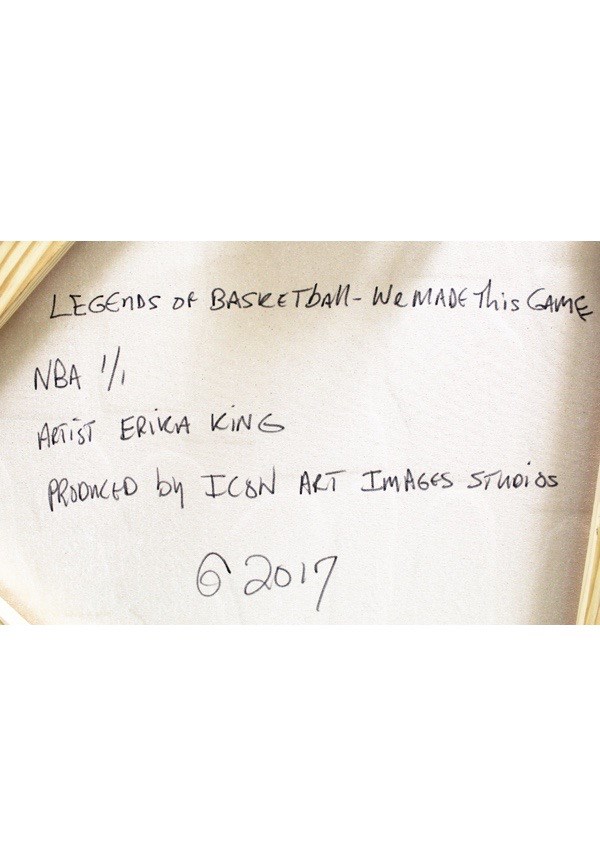 LEGENDS OF BASKETBALL - WE MADE This GAME
NBA 1/1
ARTIST ERIKA KING
PRODUCED by ICON ART IMAGES STUDIOS
© 2017